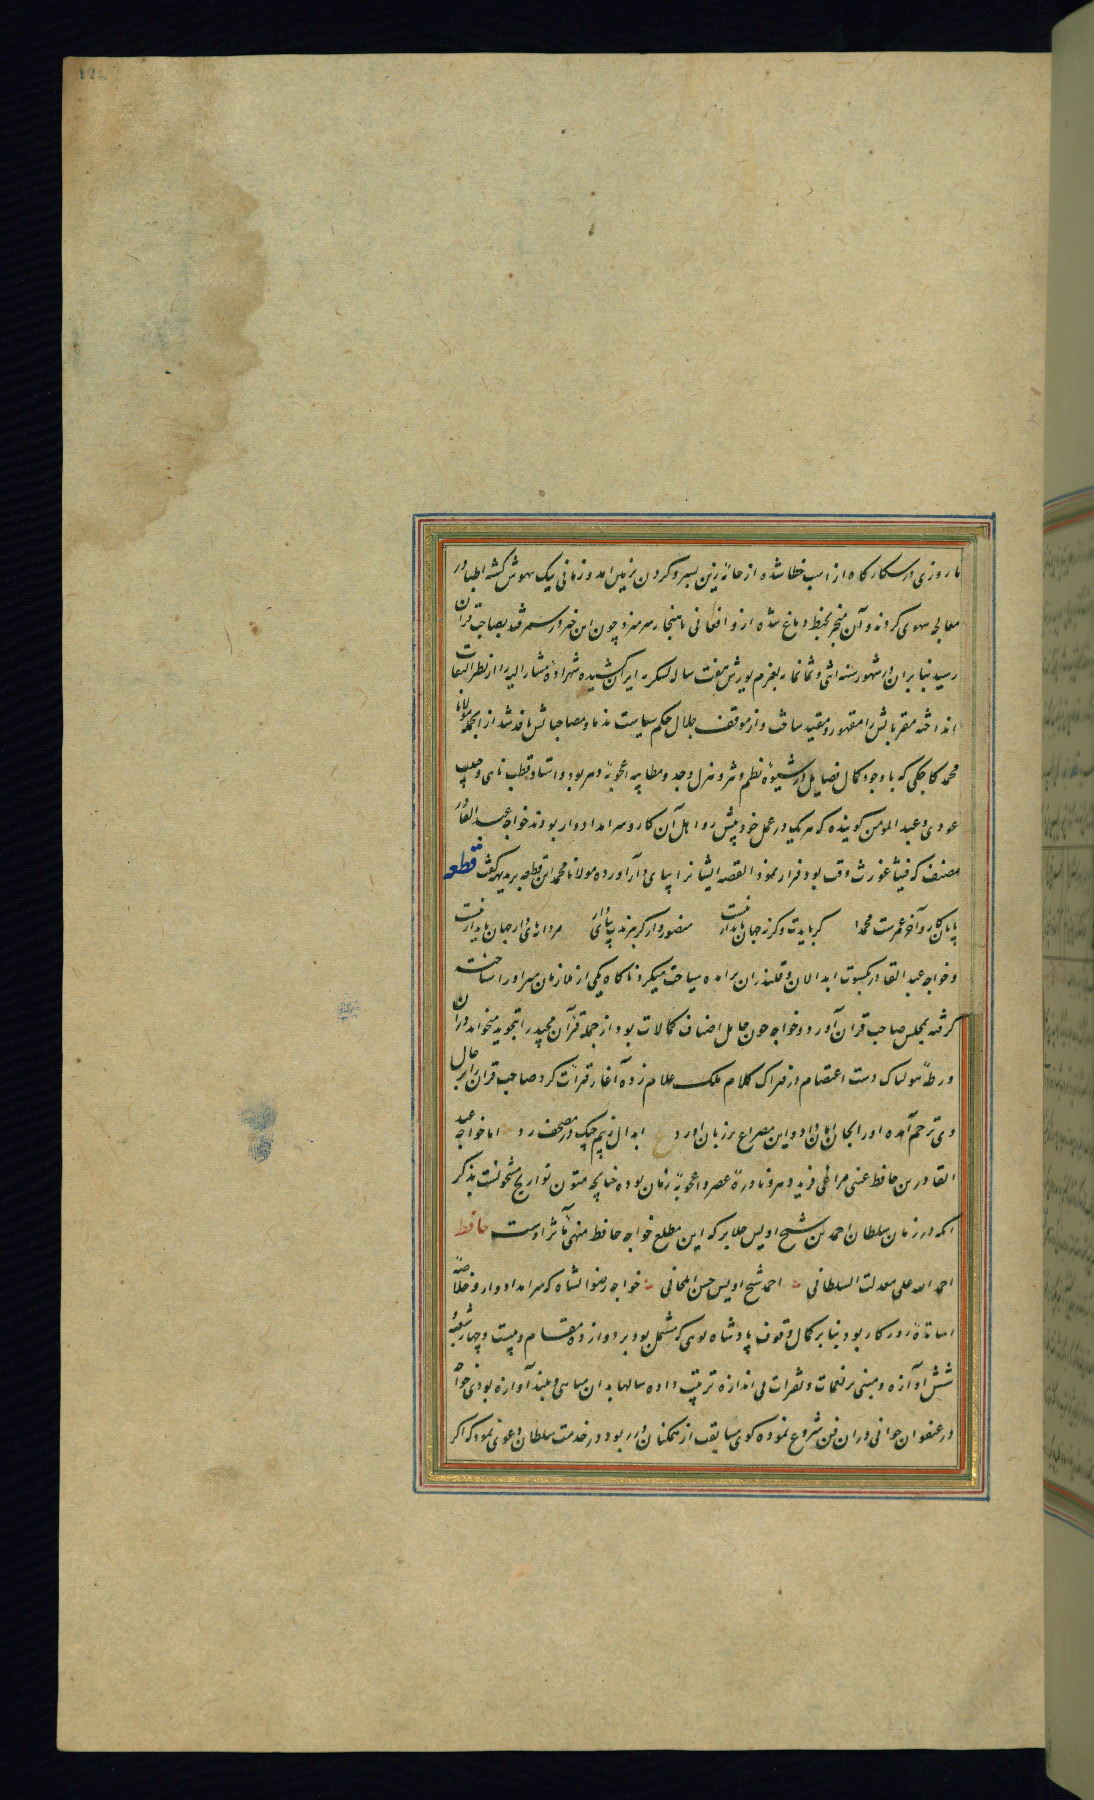 تا روزی در شکارگاه از اسب خطا شده از خانه زین بسر و گردن بزمین آمد و زمانی نیک بیهوش گشته اطبا در
معالجه سهوی کردند و آن منجر بخبط دماغ شده ازو افعالی ناهنجار سر میزد چون این خبر در سمرقند بصاحب قران
رسید بنابران در شهور سنه اثنی و ثمانمایه بعزم یورش هفت ساله لشکر به ایران کشیده شهزاده مشار الیه را از نظر التفات
انداخته مقربانش را مقهور و مقید ساخت و از موقف جلال حکم سیاست ندما و مصاحبانش نافذ شد از آنجمله مولانا
محمد کاخکی که با وجود کمال فضایل در شیوه نظم و نثر و هزل و جد و مطایبه اعجوبه دهر بود و استاد قطب نایی و حبیب
عودی و عبد المومن گوینده که هر یک در عمل خود پیش رو اهل آن کار و سرامد ادوار بودند خواجه عبد القادر
مصنف که فیثاغورث وقت بود فرار نمود القصه ایشانرا بپای دار آورده مولانا محمد این قطعه بر بدیهه گفت قطعه
پایان کار و آخر عمرست محمدا گر بایدت و گرنه جهان پایدار نیست منصور وار گر ببرندت بپای دار مردانه پای دار جهان پایدار نیست
و خواجه عبد القادر بکسوت ابدالان و قلندران برآمده سیاحت میکرد ناگاه یکی از ملازمان سر او را شناخته
گرفته بمجلس صاحب قران آورد و خواجه چون حامل اصناف کمالات بود از جمله قرآن مجید را بتجوید میخواند در آن
ورطه هولناک دست اعتصام در فتراک کلام ملک علام زده آغاز قرائت کرد صاحب قران را بر حال
وی ترحم آمده او را بجان امان داد و این مصراع بر زبان آورد ع ابدال ز بیم چنگ در مصحف زد اما خواجه عبد
القادر بن حافظ غیبی مراغی فرید دهر و نادره عصر و اعجوبه زمان بوده چنانچه متون تواریخ مشحونست بذکر
آنکه در زمان سلطان احمد بن شیخ اویس جلایر که این مطلع خواجه حافظ منهی مآثر اوست حافظ
احمد الله علی معدلت السلطانی احمد شیخ اویس حسن ایلخانی خواجه رضوانشاه که سرامد ادوار و خلاصه
اساتذه روزگار بود بنا بر کمال وقوف پادشاه نوبتی که مشتمل بود بر دوازده مقام و بیست و چهار شعبه و
شش آوازه و مبنی بر نغمات و نقرات بی اندازه ترتیب داده سالها بدان مباهی و بلند آوازه بودی خواجه
در عنفوان جوانی در ان فن شروع نموده گوی سبقت از همگنان در ربود در خدمت سلطان دعوی نمود که اگر